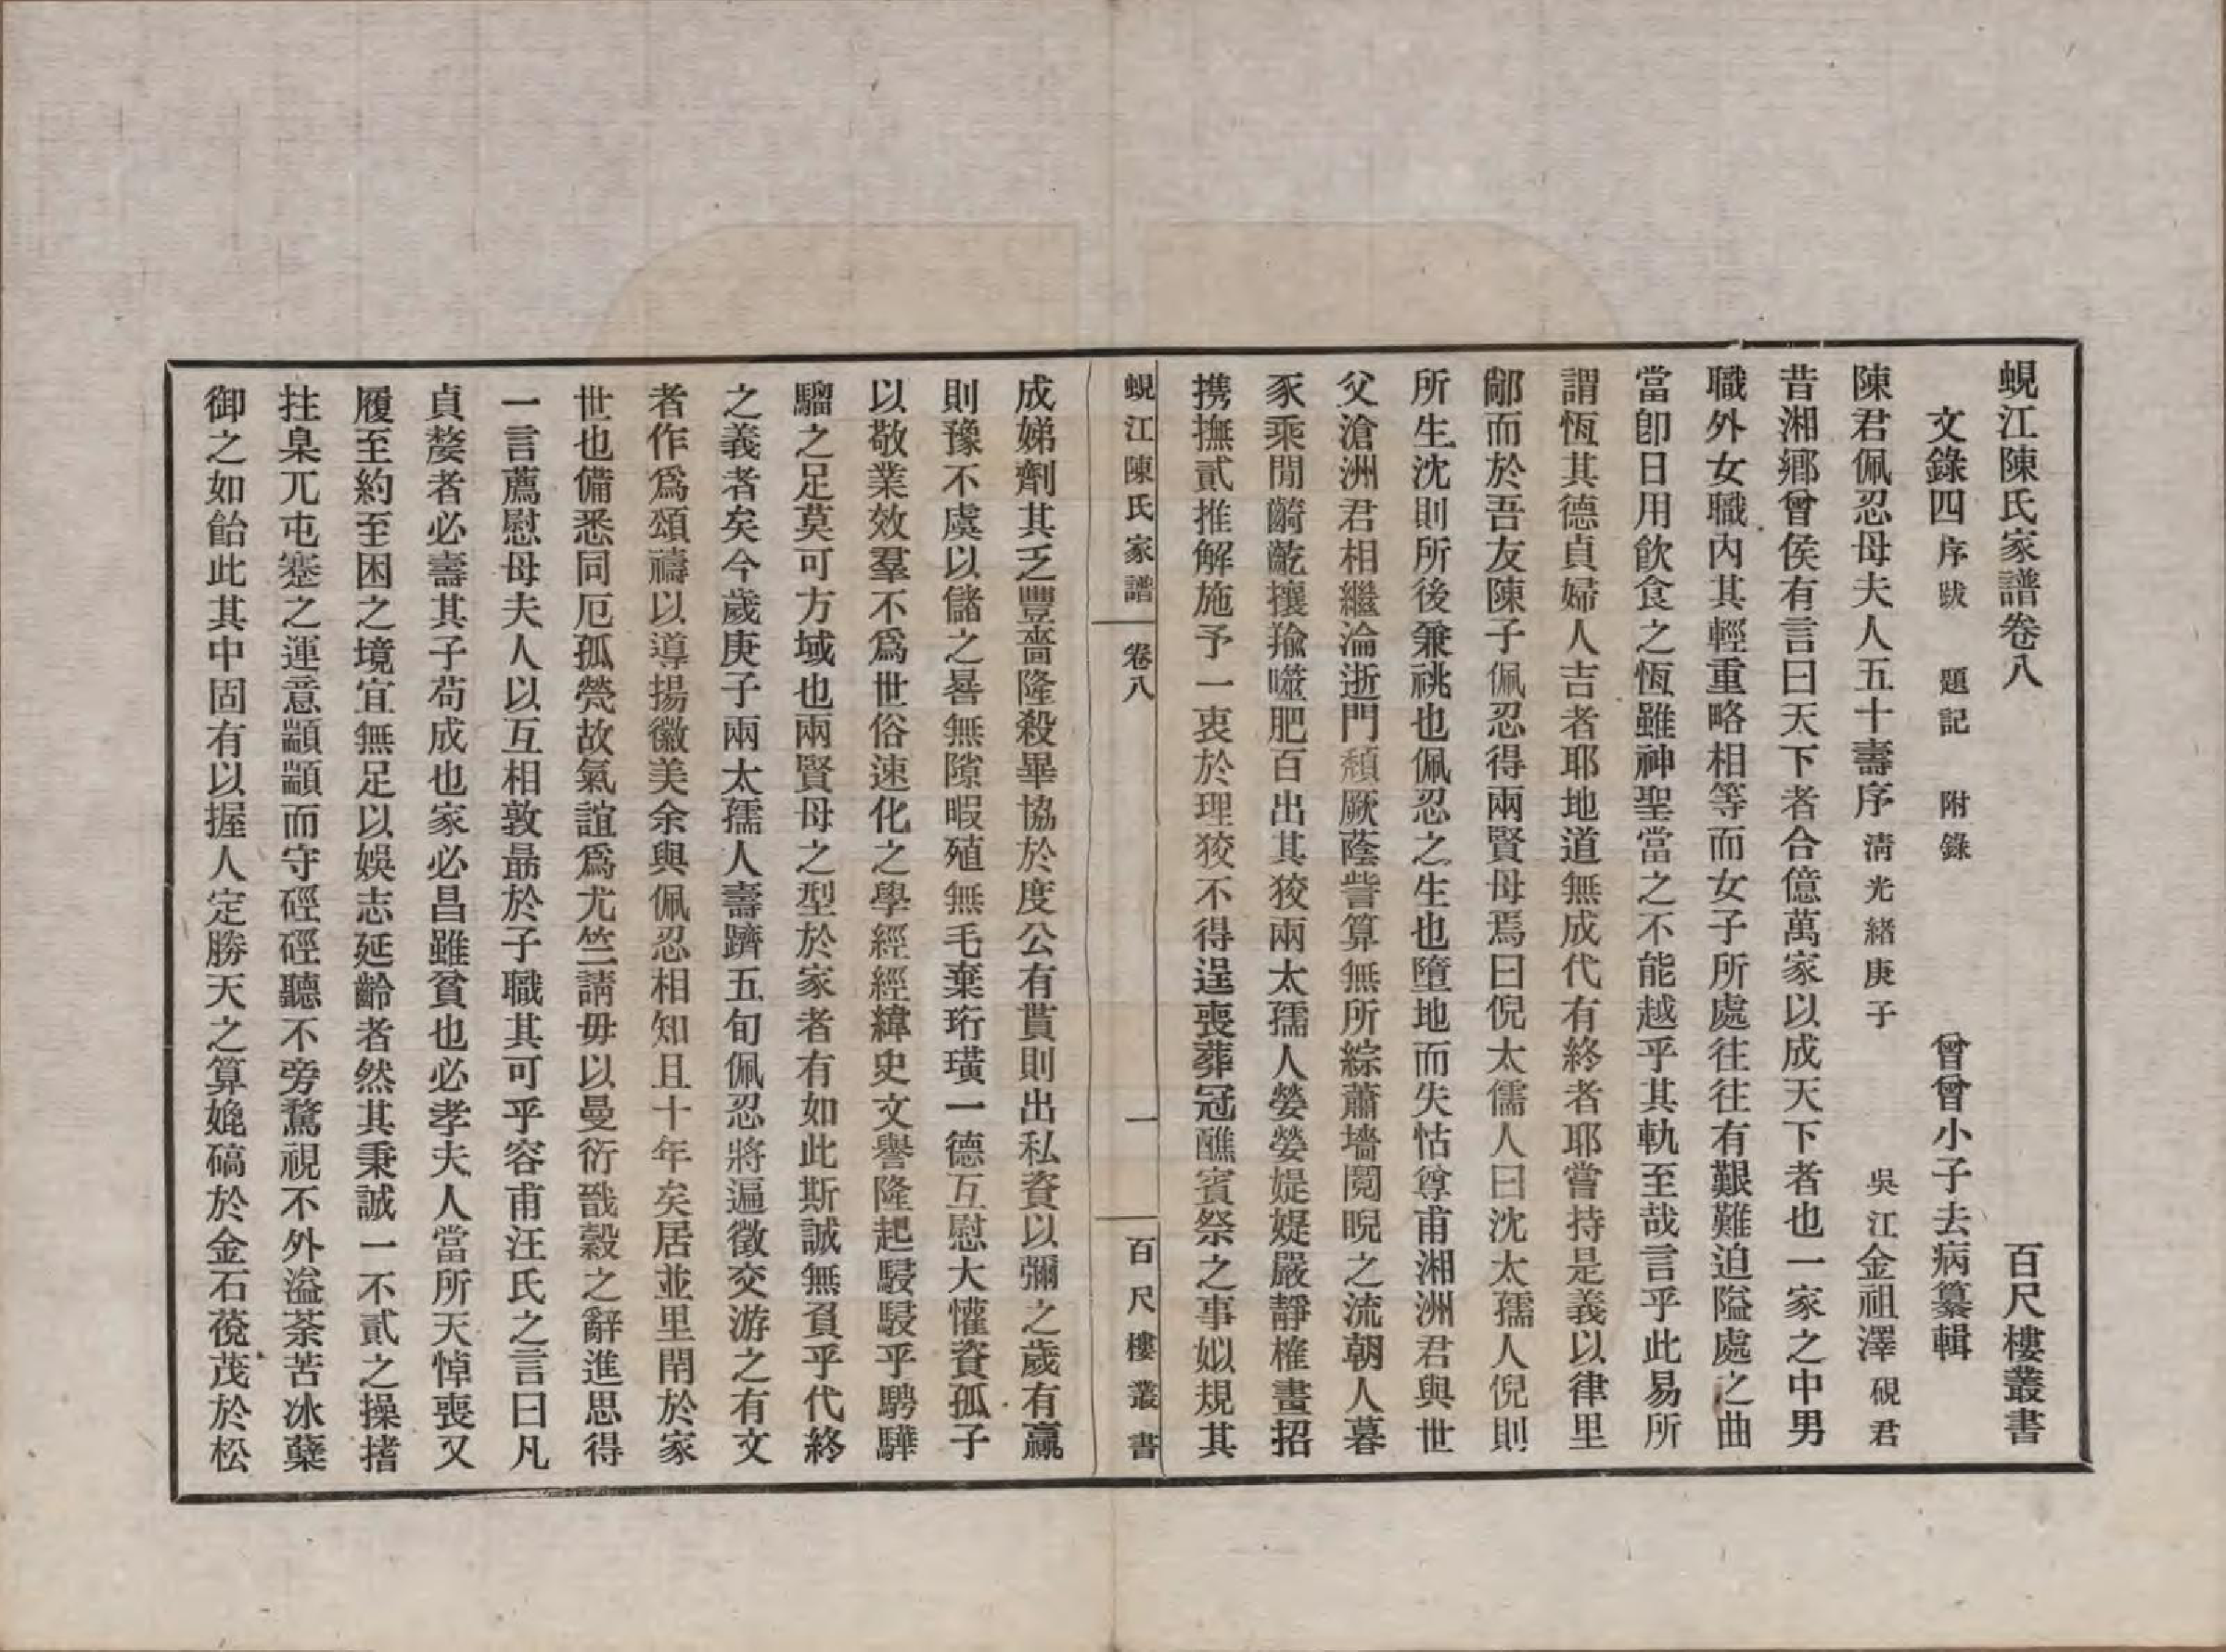 蜆江陳氏家譜卷八 百尺樓叢書
文錄四 序跋 題記 附錄 曾曾小子去病纂輯
陳君佩忍母夫人五十壽序 淸光緒庚子 吳江金祖澤硯君
昔湘鄕曾侯有言曰天下者合億萬家以成天下者也一家之中男
職外女職內其輕重略相等而女子所處往往有艱難迫隘處之曲
當卽日用飮食之恆雖神聖當之不能越乎其軌至哉言乎此易所
謂恆其德貞婦人吉者耶地道無成代有終者耶嘗持是義以律里
鄙而於吾友陳子佩忍得兩賢母焉曰倪太儒人曰沈太孺人倪則
所生沈則所後兼祧也佩忍之生也墮地而失怙尊甫湘洲君與世
父滄洲君相繼淪逝門頹厥蔭訾算無所綜蕭墻鬩睨之流朝人暮
豕乘閒齮齕攘羭噬肥百出其狡兩太孺人嫈嫈媞媞嚴靜榷畫招
携撫貳推解施予一衷於理狡不得逞喪葬冠醮賓祭之事姒規其
蜆江陳氏家譜 卷八 一 百尺樓叢書
成娣劑其乏豐嗇隆殺畢協於度公有貰則出私資以彌之歲有贏
則豫不虞以儲之晷無隙暇殖無毛棄珩璜一德互慰大懽資孤子
以敬業效羣不爲世俗速化之學經經緯史文譽隆起駸駸乎騁驊
騮之足莫可方域也兩賢母之型於家者有如此斯誠無負乎代終
之義者矣今歲庚子兩太孺人壽躋五旬佩忍將遍徵交游之有文
者作爲頌禱以導揚徽美余與佩忍相知且十年矣居並里閈於家
世也備悉同厄孤煢故氣誼爲尤竺請毋以曼衍戩穀之辭進思得
一言薦慰母夫人以互相敦勗於子職其可乎容甫汪氏之言曰凡
貞嫠者必壽其子苟成也家必昌雖貧也必孝夫人當所天悼喪又
履至約至困之境宜無足以娛志延齡者然其秉誠一不貳之操揩
拄臬兀屯蹇之運意顓顓而守硜硜聽不旁騖視不外溢荼苦冰蘖
御之如飴此其中固有以握人定勝天之算娩碻於金石蕵茂於松